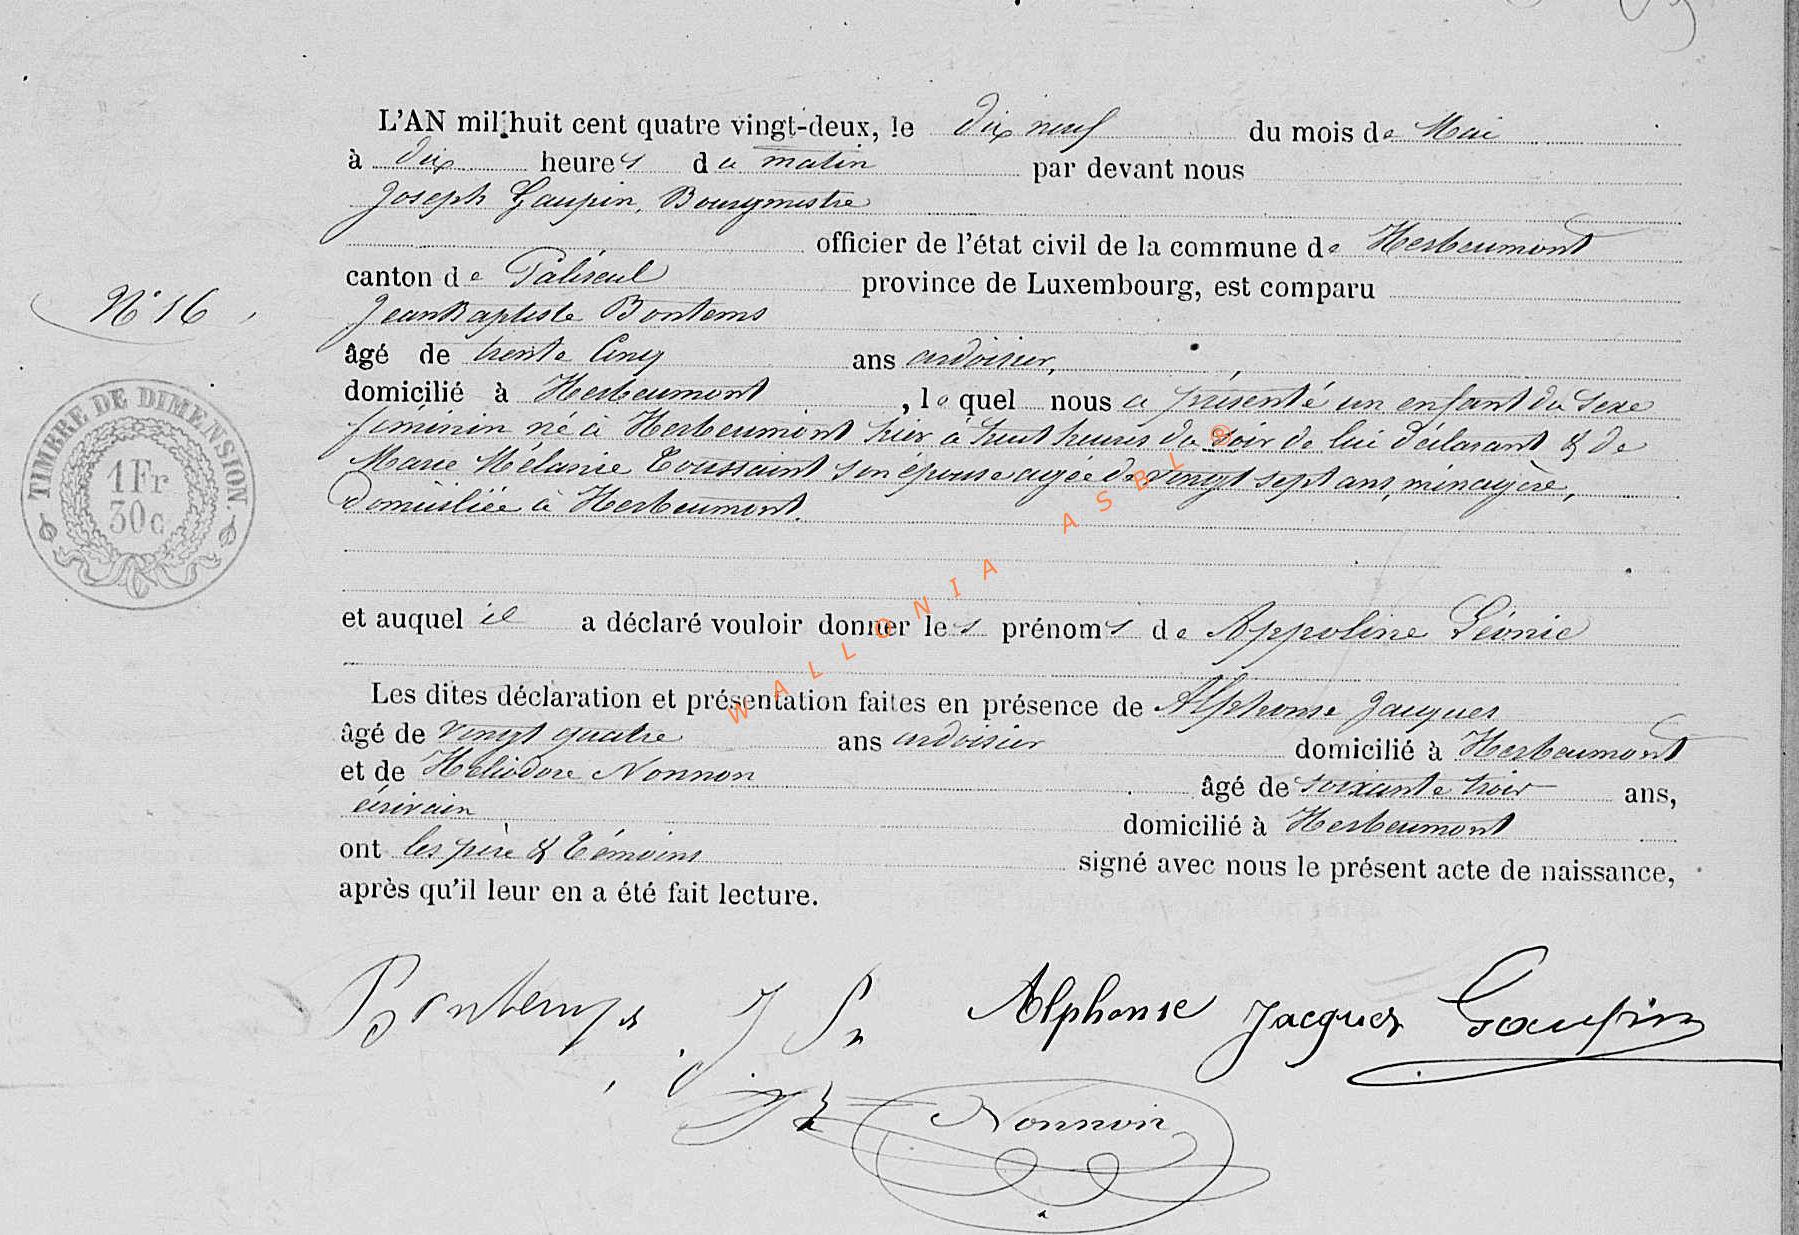 L'AN mil huit cent quatre vingt-deux, le dix neuf du mois de Mai
à dix heures du matin par devant nous
Joseph Gaupin, Bourgmestre
officier de l'état civil de la commune de Herbeumont
canton de Paliseul province de Luxembourg, est comparu
N° 16
Jean Baptiste Bontems
âgé de trente cinq ans ardoisier,
domicilié à Herbeumont, lequel nous a présenté un enfant du sexe
féminin né à Herbeumont hier à huit heures du soir de lui déclarant & de
Marie Mélanie Toussaint son épouse agée de vingt sept ans, ménagère,
domiciliée à Herbeumont.
TIMBRE DE DIMENSION
1 Fr
30 c
et auquel il a déclaré vouloir donner les prénoms de Appoline Léonie
Les dites déclaration et présentation faites en présence de Alphonse Jacques
âgé de vingt quatre ans ardoisier domicilié à Herbeumont
et de Héliodore Nonnon âgé de soixante trois ans,
écrivain domicilié à Herbeumont
ont les père & témoins signé avec nous le présent acte de naissance,
après qu'il leur en a été fait lecture.
Bontemps J Alphonse Jacques Gaupin
Nonnon
WALLONIA ASBL ©